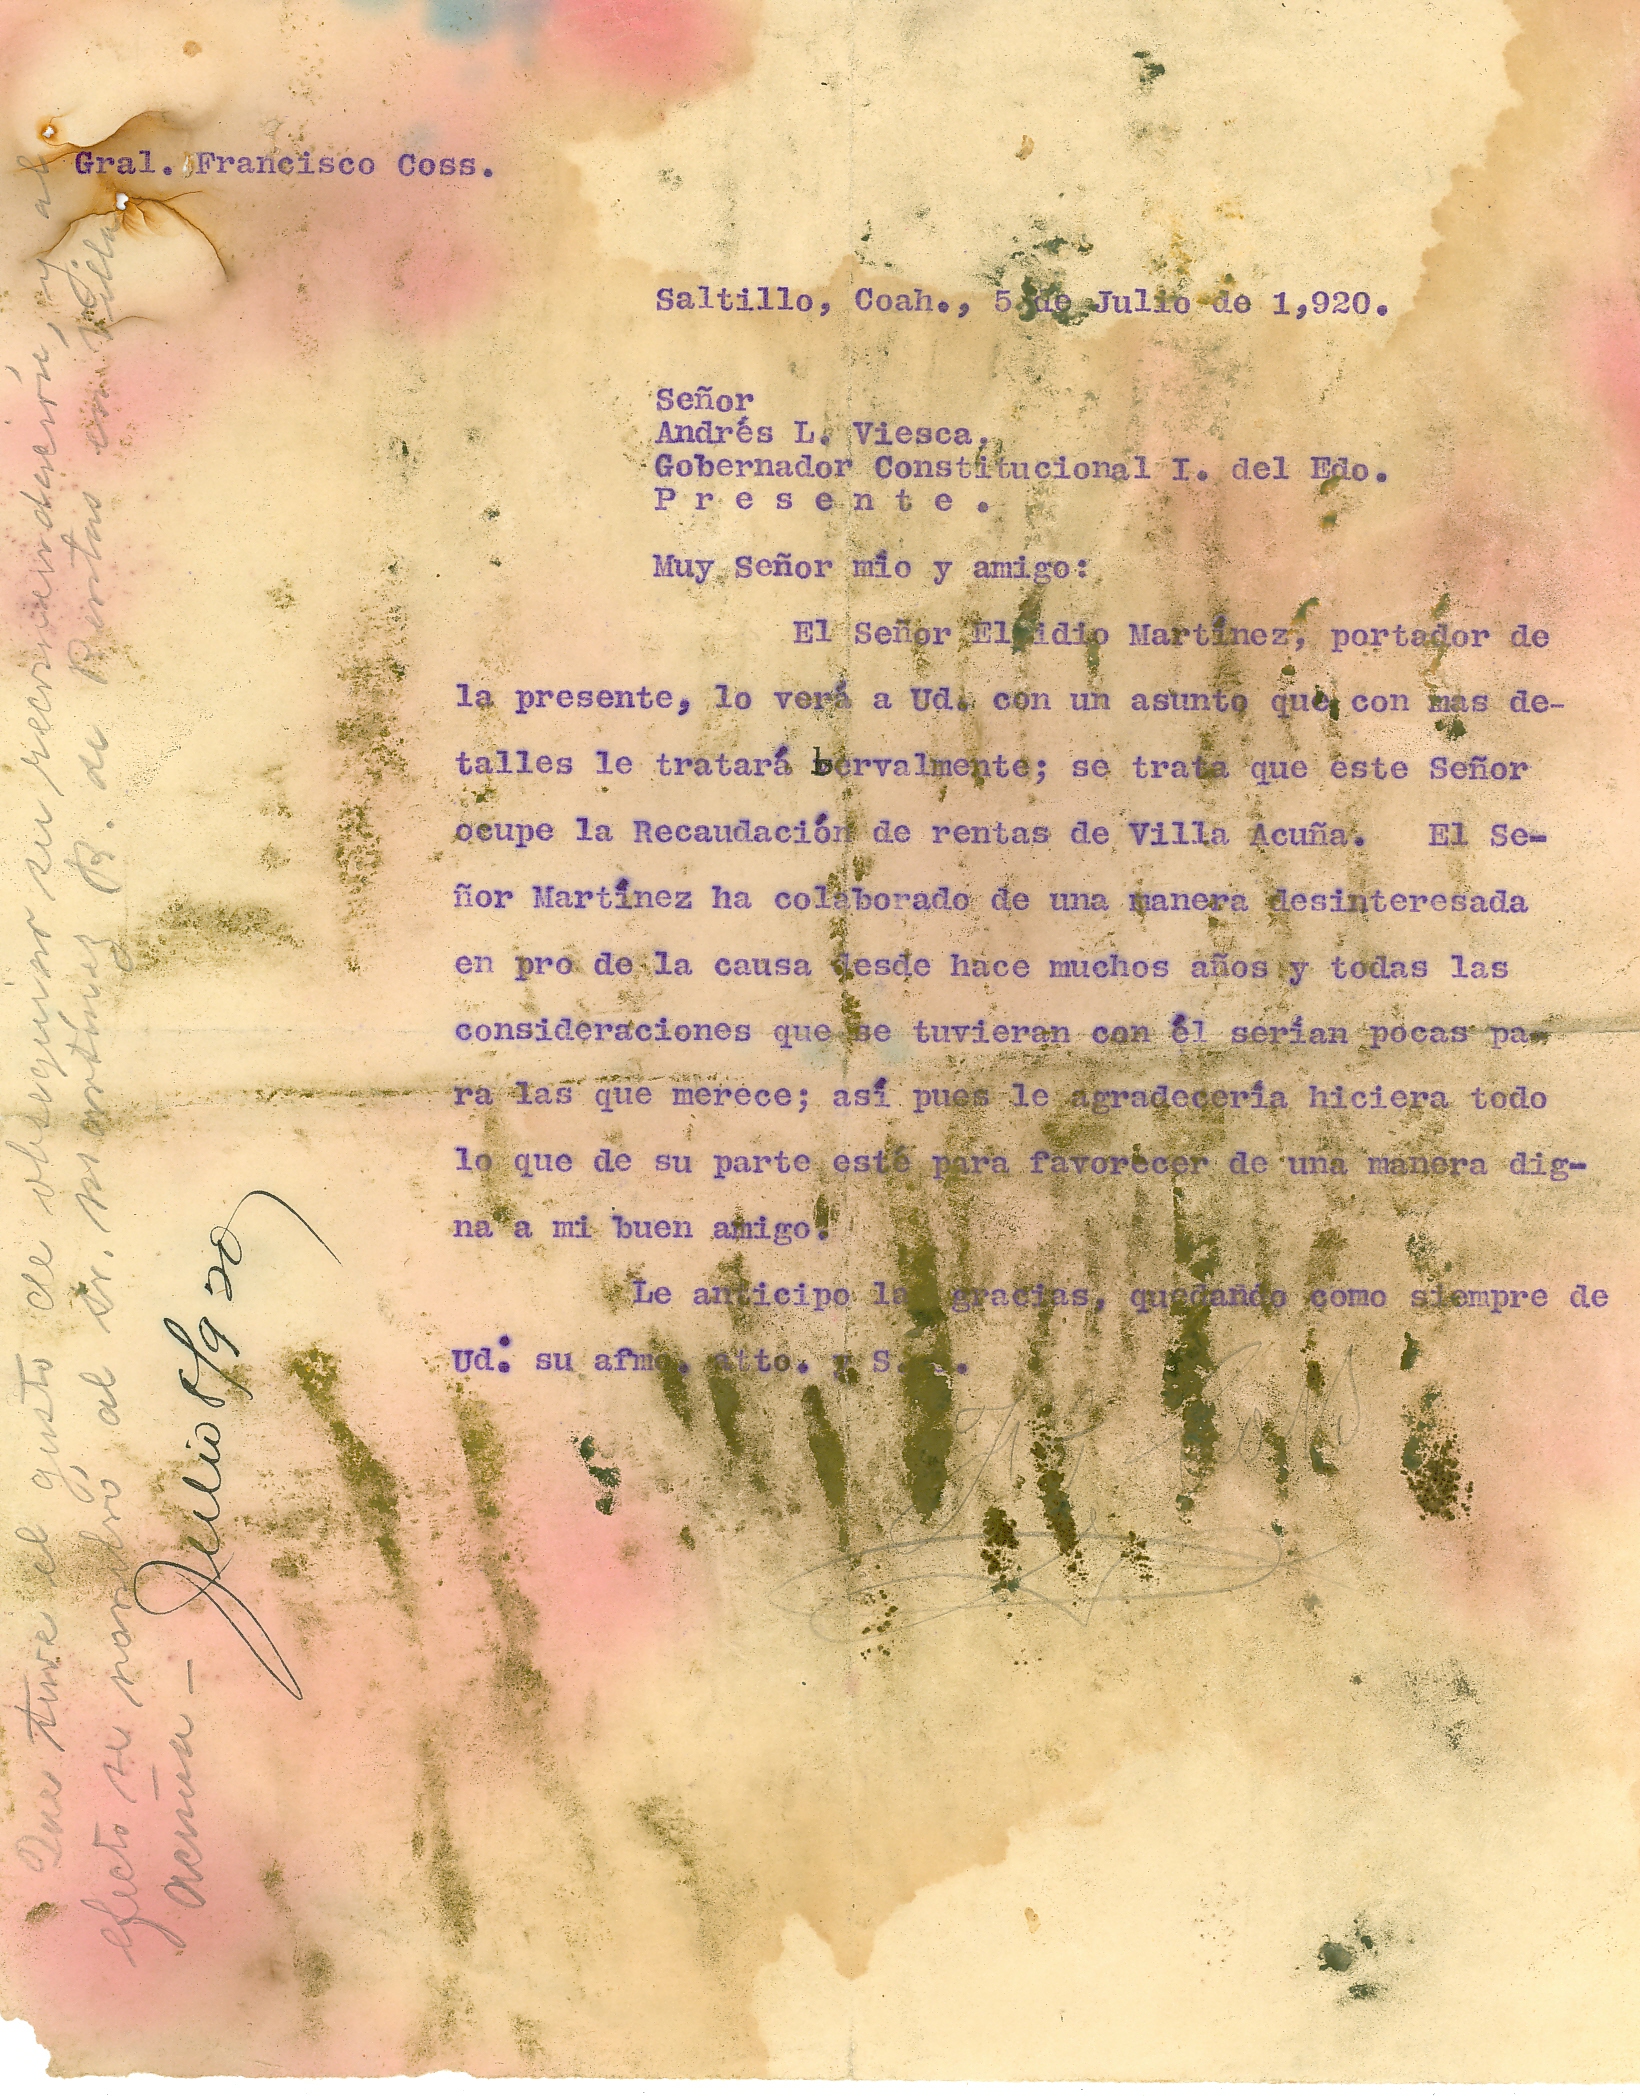 Gral. Francisco Coss.
Saltillo, Coah., 5 de Julio de 1,920.
Señor
Andrés L. Viesca.
Gobernador Constitucional I. del Edo.
P r e s e n t e .
Muy Señor mio y amigo:
El Señor Martínez, portador de
la presente, lo verá a Ud. con un asunto que con mas de-
talles le tratará bervalmente; se trata que este Señor
ocupe la Recaudación de rentas de Villa Acuña. El Se-
ñor Martínez ha colaborado de una manera desinteresada
en pro de la causa desde hace muchos años y todas las
consideraciones que se tuvieran con él serían pocas pa-
ra las que merece; así pues le agradecería hiciera todo
lo que de su parte esté para favorecer de una manera dig-
na a mi buen amigo.
Le anticipo las gracias, quedando como siempre de
Ud. su afmo. atto. y S.
Coss
Que tuve el gusto de obsequiar su recomendación, y al
efecto se nombró al Sr. Martínez R. de Rentas en Villa
Acuña —
Julio 8/920